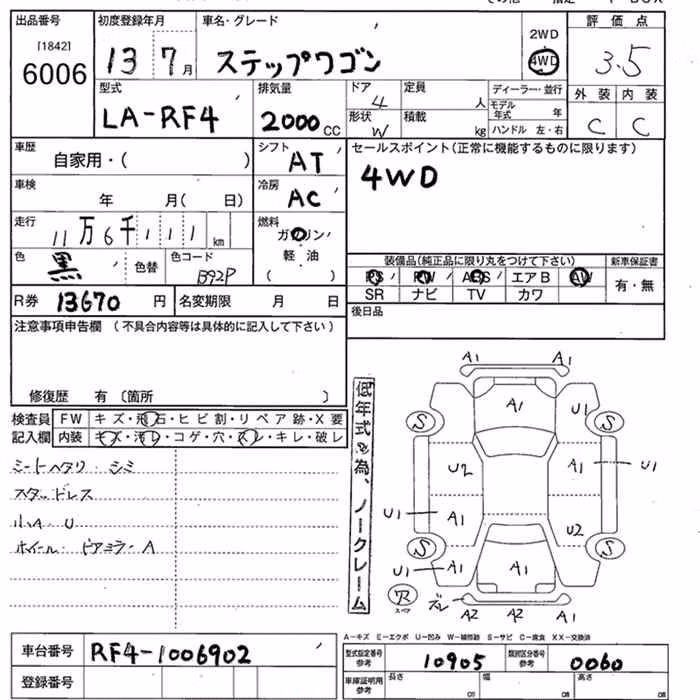 出品番号
[1842]
6006
初度登録年月
13 7月
車名・グレード
ステップワゴン
2WD
4WD
評価点
3.5
型式
LA-RF4
排気量
2000cc
ドア 4
形状 W
定員 人
積載 kg
ディーラー・並行
モデル年式 年
ハンドル 左・右
外装 内装
C C
車歴
自家用・( )
シフト
AT
セールスポイント(正常に機能するものに限ります)
4WD
車検
年 月( 日)
冷房
AC
走行
11万6千111km
燃料
ガソリン
軽油
( )
色
黒
色替
色コード
B92P
装備品(純正品に限り丸をつけて下さい)
PS PW ABS エアB AW
SR ナビ TV カワ
新車保証書
有・無
R券 13670円
名変期限 月 日
後日品
注意事項申告欄 (不具合内容等は具体的に記入して下さい)
修復歴 有〔箇所 〕
検査員記入欄
FW キズ・飛石・ヒビ割・リペア跡・X要
内装 キズ・汚レ・コゲ・穴・スレ・キレ・破レ
シートヘタリ シミ
スタッドレス
小A U
ホイール ドアミラー A
低年式の為、ノークレーム
A1 A1
A1 U1
S S
U2 A1 U1
U1 A1 U2
S S
U1 A1 A1 A1
穴
スペア
ズレ A2 A2 A1
A-キズ E-エクボ U-凹み W-補修跡 S-サビ C-腐食 XX-交換済
車台番号
RF4-1006902
型式指定番号 参考
10905
類別区分番号 参考
0060
登録番号
車庫証明用 参考
長さ cm
幅 cm
高さ cm